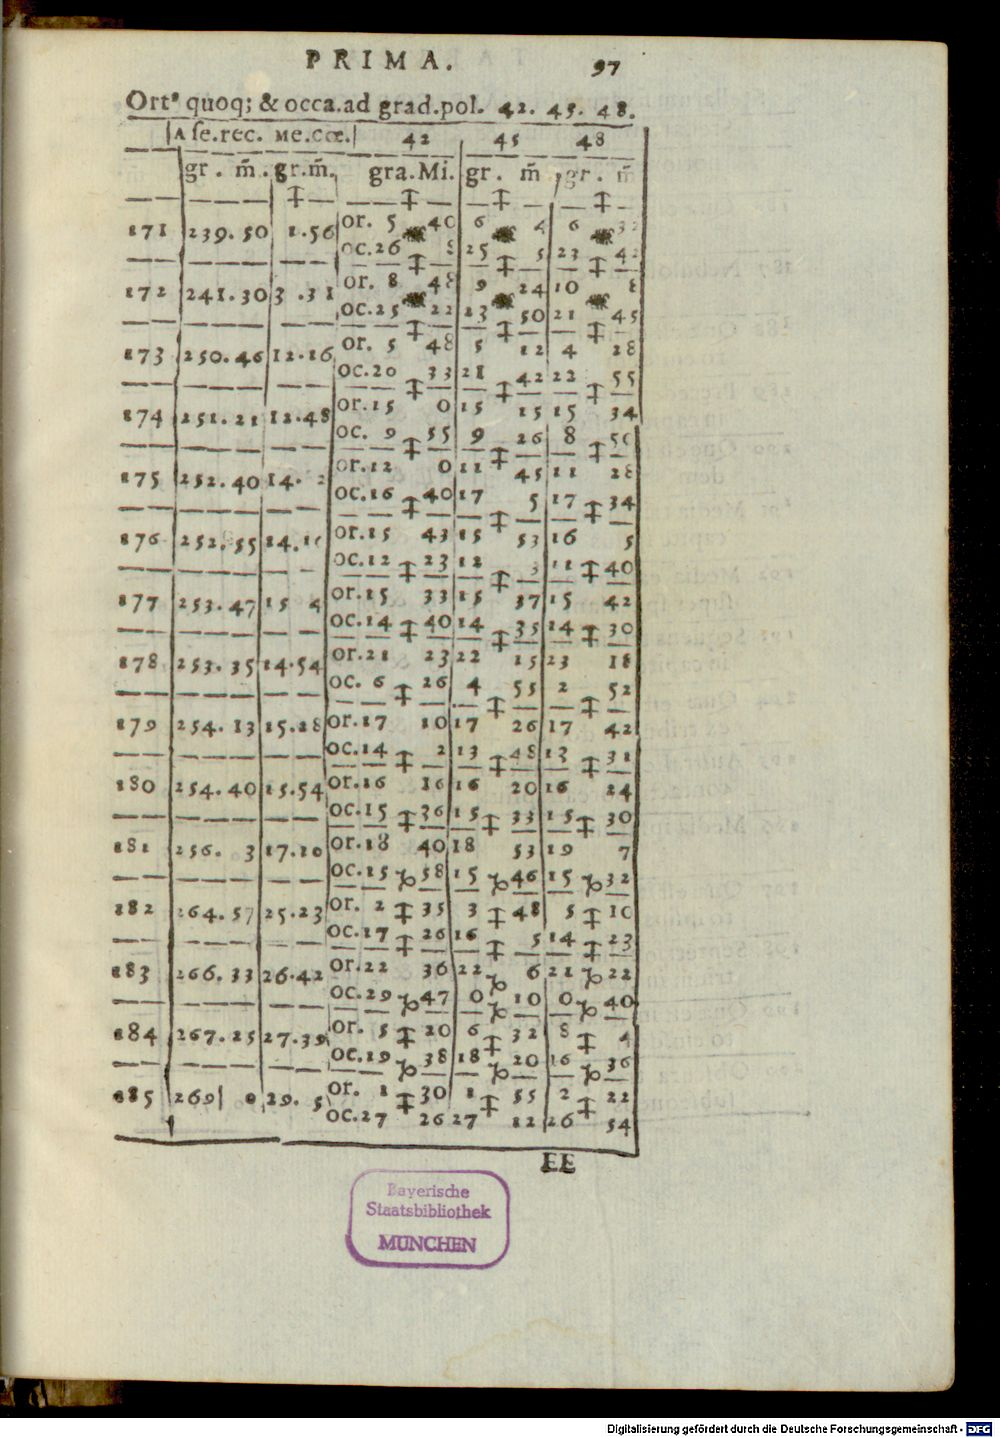 PRIMA. 97
Ortˢ quoq; & occa. ad grad. pol. 42. 45. 48.
A ſe. rec. Me. cœ. 42 45 48
gr. m̄. gr. m̄. gra. Mi. gr. m̄ gr. m̄
171 239.50 1.56 or. 5 40 6 4 6 32
oc. 26 8 25 5 23 42
172 241.30 3.31 or. 8 48 9 24 10 8
oc. 25 22 23 50 21 45
173 250.46 12.16 or. 5 48 5 12 4 28
oc. 20 33 21 42 22 55
174 251.21 12.48 or. 15 0 15 15 15 34
oc. 9 55 9 26 8 50
175 252.40 14. 2 or. 12 0 11 45 11 28
oc. 16 40 17 5 17 34
176 252.55 14. or. 15 43 15 53 16 5
oc. 12 23 12 3 11 40
177 253.47 15 4 or. 15 33 15 37 15 42
oc. 14 40 14 35 14 30
178 253.35 14.54 or. 21 23 22 15 23 18
oc. 6 26 4 55 2 52
179 254.13 15.28 or. 17 10 17 26 17 42
oc. 14 2 13 48 13 31
180 254.40 15.54 or. 16 16 16 20 16 24
oc. 15 36 15 33 15 30
181 256. 3 17.20 or. 18 40 18 53 19 7
oc. 15 ♑ 58 15 ♑ 46 15 ♑ 32
182 264.57 25.23 or. 2 35 3 48 5 10
oc. 17 26 16 5 14 23
183 266.33 26.42 or. 22 36 22 6 21 ♑ 22
oc. 29 ♑ 47 0 ♑ 10 0 ♑ 40
184 267.25 27.39 or. 5 20 6 32 8 4
oc. 19 ♑ 38 18 ♑ 20 16 ♑ 36
185 269 0 29. 5 or. 1 30 1 55 2 22
oc. 27 26 27 12 26 54
EE
Bayerische
Staatsbibliothek
MÜNCHEN
Digitalisierung gefördert durch die Deutsche Forschungsgemeinschaft - DFG